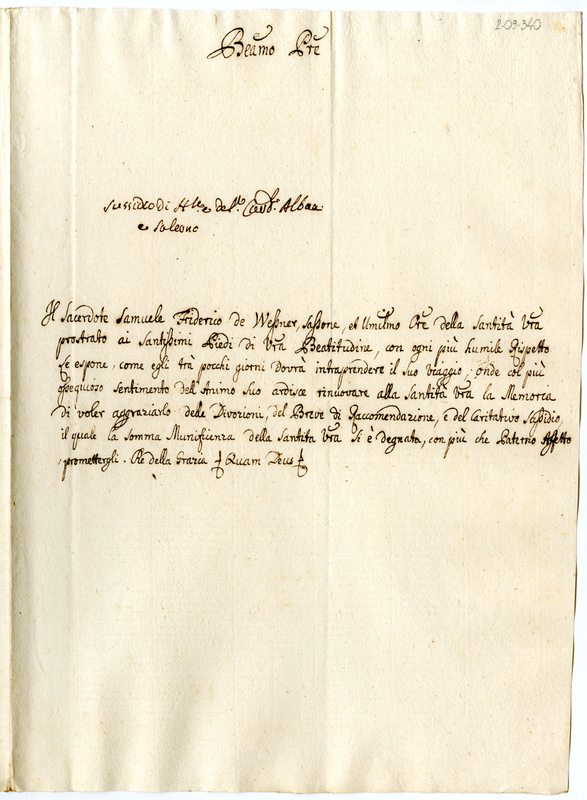 2-09-340
Beãmo Prẽ
sussidio di Alb.e del Card. Albaa
e Salerno
Il Sacerdote Samuele Friderico de Weßner, Saßone, et Umilmo Ore della Santità Vra
prostrato ai Santißimi Piedi di Vra Beatitudine, con ogni più humile Rispetto
le espone, come egli trà pocchi giorni dovrà intraprendere il suo viaggio; onde col più
oßequioso sentimento dell'Animo Suo ardisce rinuovare alla Santità Vra la Memoria
di voler aggraziarlo delle Divozioni, del Breve di Raccomendazione, e del caritativo Saßidio,
il quale la somma Munifizenza della Santità Vra si è degnata, con più che Paterno Affetto
promettergli. Che della Grazia Quam Deus